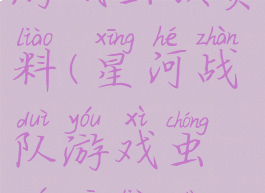 liào xīng hé zhàn
料(星河战
duì yóu xì chóng
队游戏虫